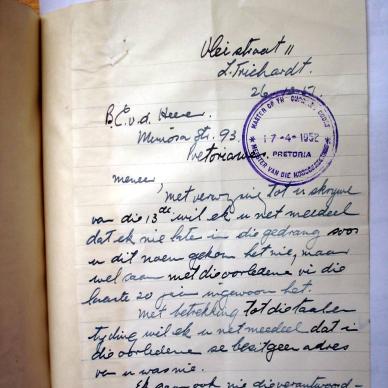 Vleistraat 11
L. Trichardt.
B. E. v. d. Heever
Mimosa Str. 93
Pretoria
MASTER OF THE SUPREME COURT
17-4-1952
PRETORIA
MEESTER VAN DIE HOOGGEREGSHOF
Meneer,
Met verwysing tot u skrywe
van die 13de wil ek u net meedeel
dat ek nie in die gedrang soos
u dit noem gekom het nie, maar
wel saam met die oorledene vir die
laaste 20 jaar ingewoon het.
Met betrekking tot die
tyding wil ek u net meedeel dat in
die oorledene se besit geen adres
van u was nie.
Ek gaan ook nie die verantwoord-